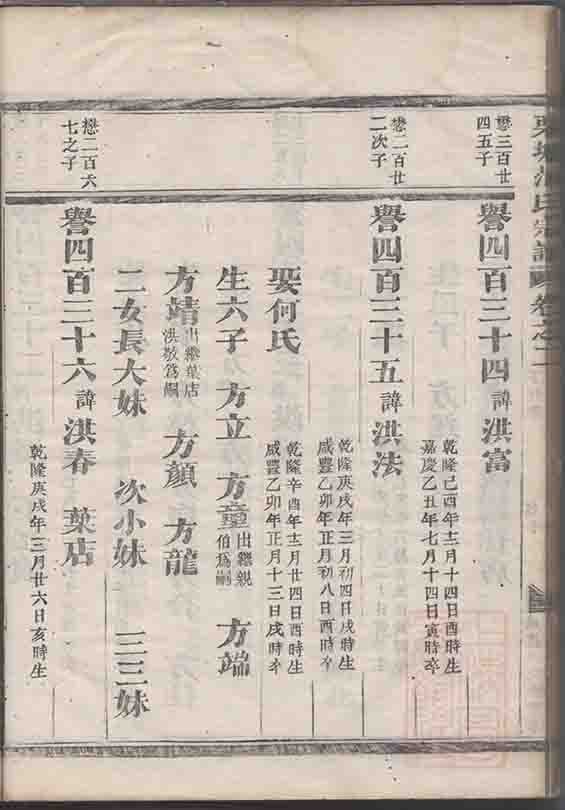 氏宗譜 卷之二
懋三百廿四五子
譽四百三十四 諱 洪富
乾隆己酉年十二月十四日酉時生
嘉慶乙丑年七月十四日寅時卒
懋二百廿二次子
譽四百三十五 諱 洪法
乾隆庚戌年三月初四日戌時生
咸豐乙卯年正月初八日酉時卒
娶何氏
乾隆辛酉年十二月廿四日酉時生
咸豐乙卯年正月十三日戌時卒
生六子 方立 方童 出繼親伯爲嗣 方端
方靖 出繼葉店洪敬爲嗣 方顏 方龍
二女長大妹 次小妹 三三妹
懋二百六七之子
譽四百三十六 諱 洪春 葉店
乾隆庚戌年三月廿六日亥時生